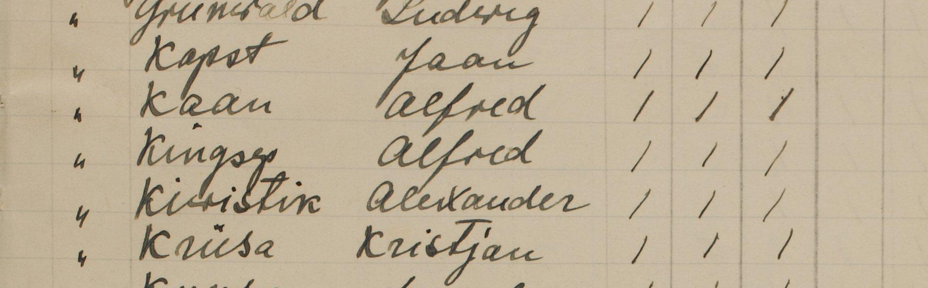 " Grünwald Ludwig / / /
" Kapst Jaan / / /
" Kaan Alfred / / /
" Kingsep Alfred / / /
" Kiwistik Alexander / / /
" Krüsa Kristjan / / /